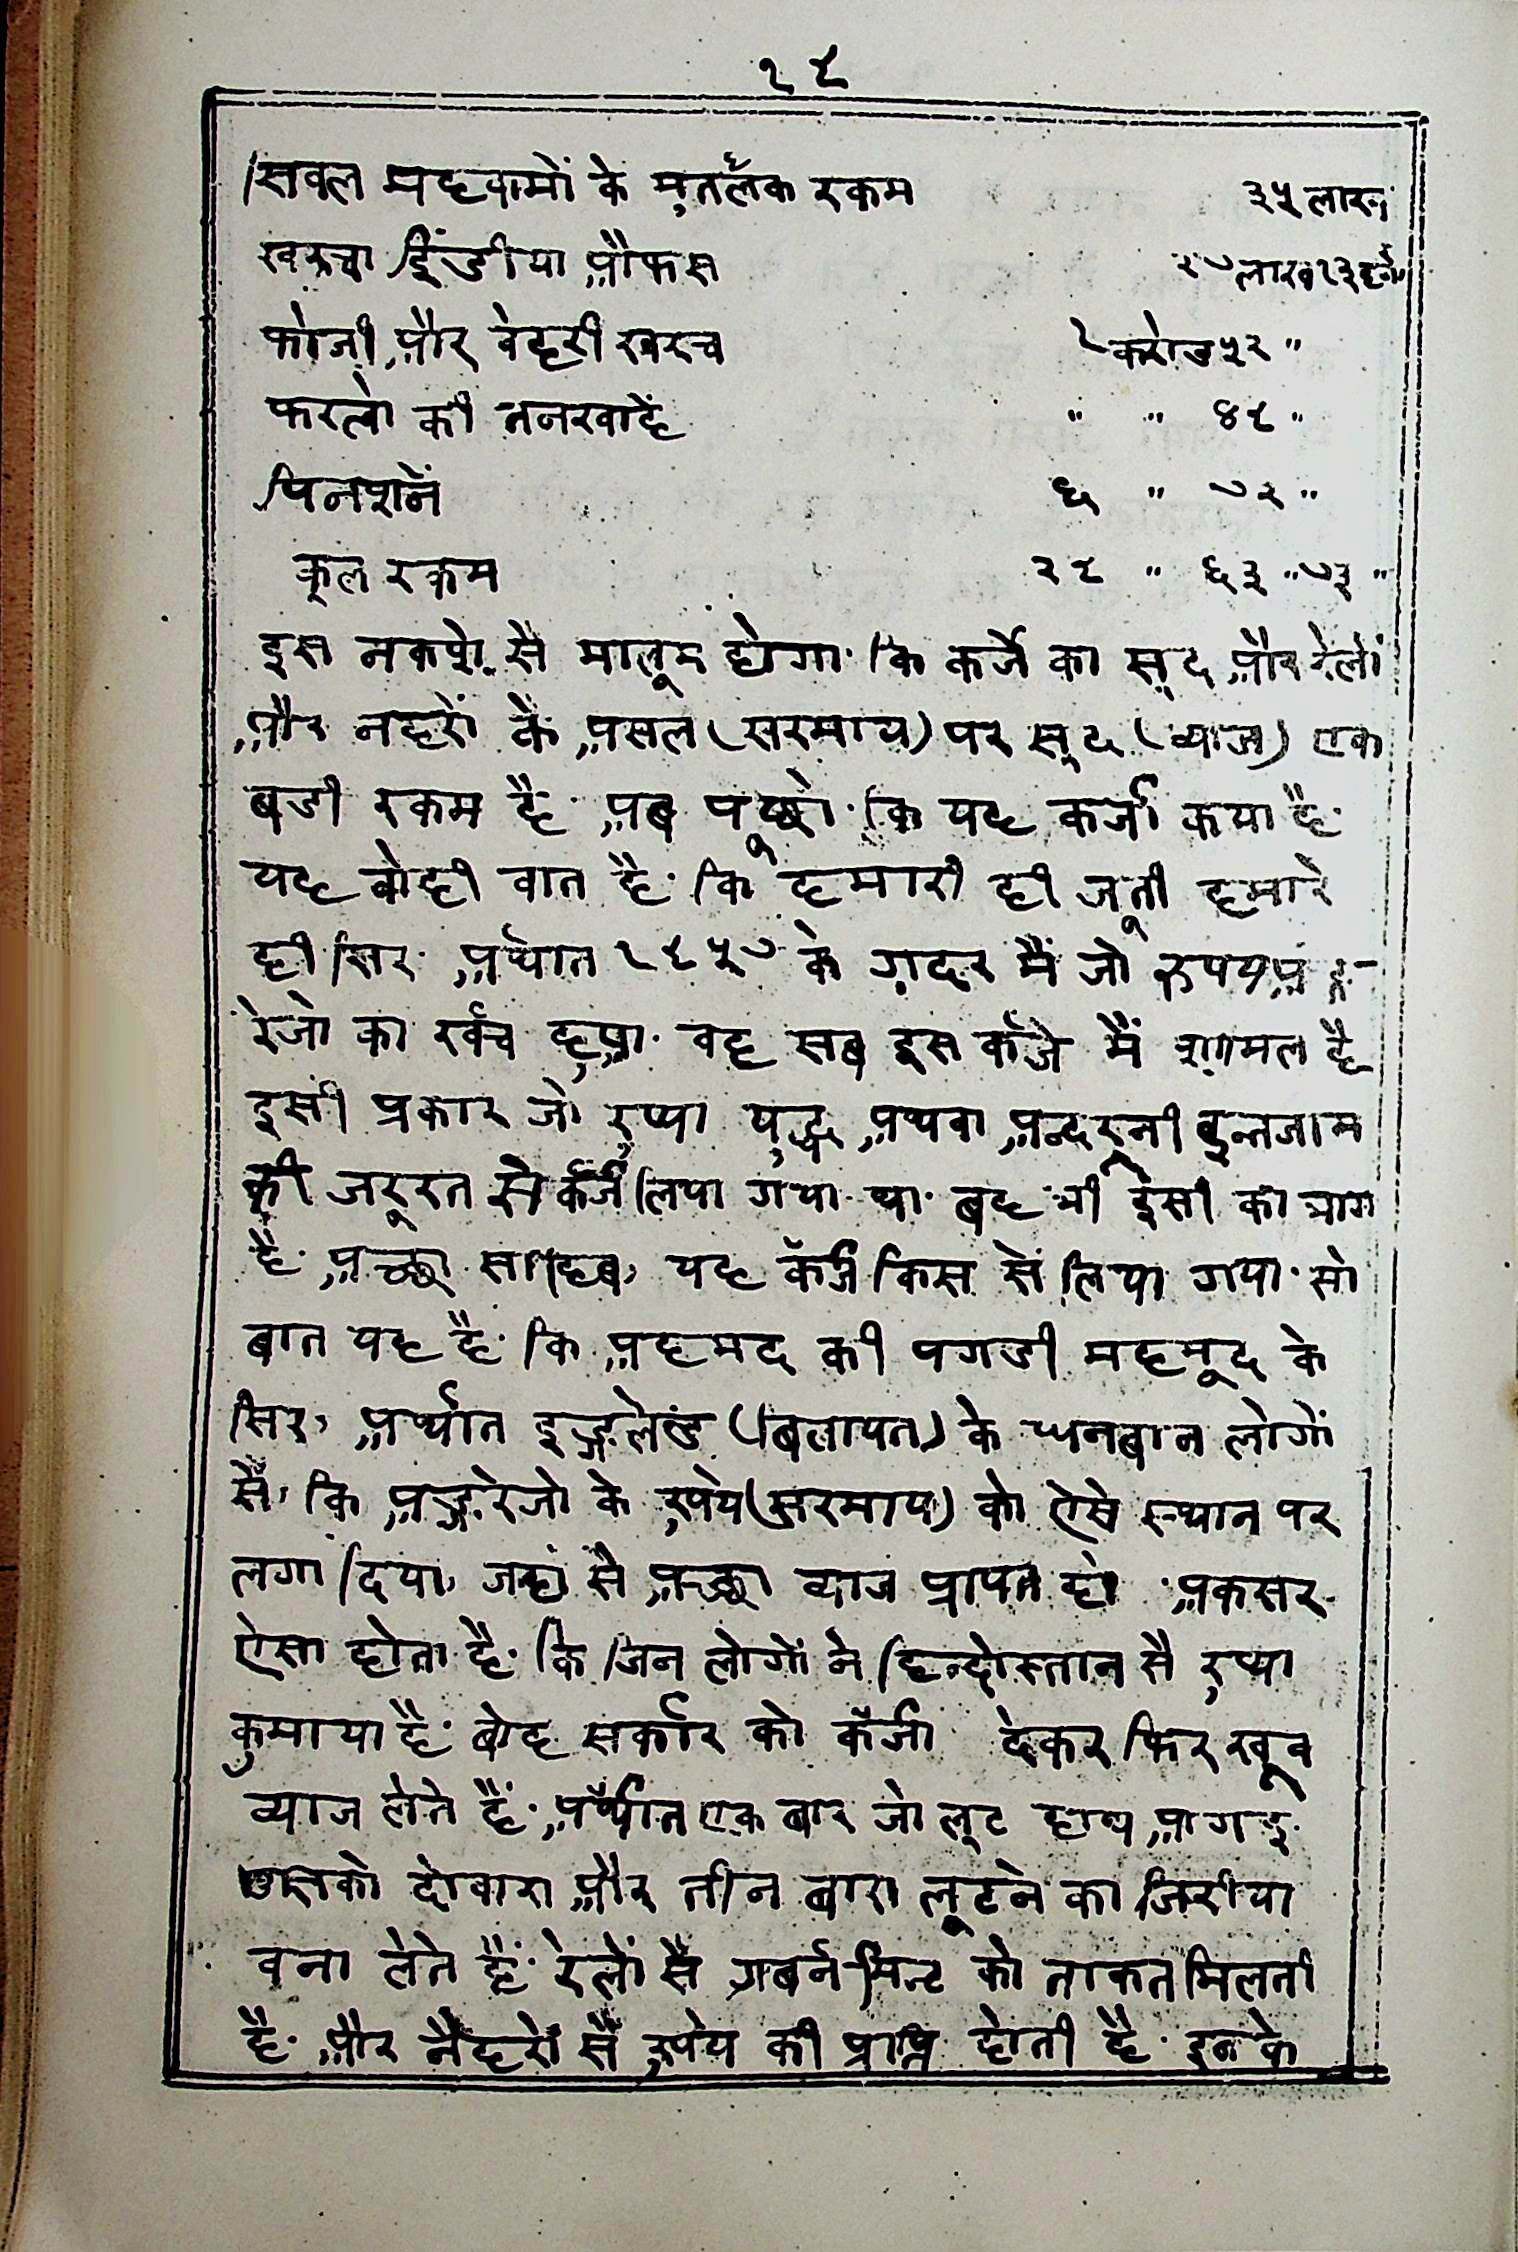 १८
सिवल महकामों के मुतलॅक रकम ३५ लाख
खरचा इिंडीया औफस २७ लाख १३ हजार
फोजी और बेहरी खरच १ करोड ५२ "
फरलो की तनखाहें " " ४८ "
पिनशनें ६ " ७२ "
कुल रकम २८ " ६३ " ७३ "
इस नकशे सै मालूम होगा कि कर्जे का सूद और रेलों
और नहरों कै असल (सरमाय) पर सूद (व्याज) एक
बडी रकम है अब पूछो कि यह कर्जा कया है
यह वोही वात है कि हमारी ही जूती हमारे
ही सिर अर्थात १८५७ के ग़दर मैं जो रुपय अङ्ग
रेजो का र्खच हुआ वह सब इस कॅजे मैं शामल है
इसी प्रकार जो रुप्या युद्ध अथवा अन्दरूनी इन्तजाम
की जरूरत से कॅर्ज लिया गया था बह भी इसी का भाग
है अच्छा साहिब, यह कॅर्ज किस सें लिया गया सो
बात यह है कि अहमद की पगडी महमूद के
सिर, अर्थात इङ्गलेण्ड (बिलायत) के धनबान लोगों
सें, कि अङ्गरेजो के रुपेय (सरमाय) को ऐसे स्थान पर
लगा दिया, जहां सै अच्छा व्याज प्रापत हो अकसर
ऐसा होता है कि जिन लोगों ने हिन्दोस्तान सै रुप्या
कुमाया है बोह सर्कार को कॅर्जा देकर फिर खूब
व्याज लेते हैं अर्थात एक बार जो लूट हाथ आ गइ
उसको दोवारा और तीन बारा लूटने का जिरीया
वना लेते हैं रेलों सै गबर्नमिन्ट को ताकत मिलती
है और नैहरों सैं रुपेय की प्राप्ति होती है इनके